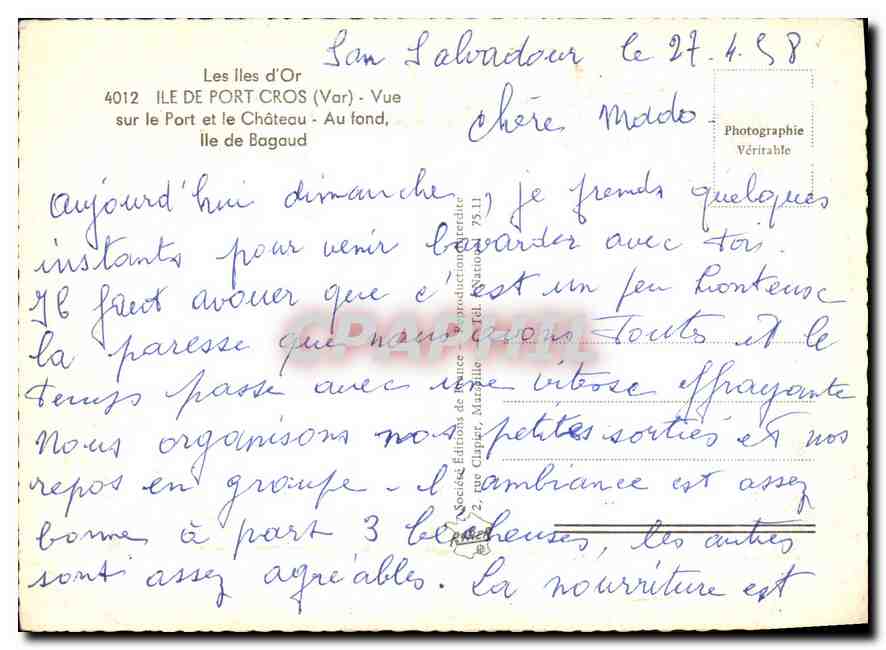 San Salvadour le 27.4.58
Les Iles d'Or
4012 ILE DE PORT CROS (Var) - Vue
sur le Port et le Château - Au fond,
Ile de Bagaud
Chère Mado -
Photographie
Véritable
Aujourd'hui dimanche, je prends quelques
instants pour venir bavarder avec toi.
Il faut avouer que c'est un peu honteuse
la paresse que nous avons toutes et le
temps passe avec une vitesse effrayante
Nous organisons nos petites sorties et nos
repos en groupe - l'ambiance est assez
bonne à part 3 bêcheuses, les autres
sont assez agréables. La nourriture est
Société Editions de France - Reproduction interdite
2, rue Clapier, Marseille - Tél. National 75.11
RYNER
CPAPHIL